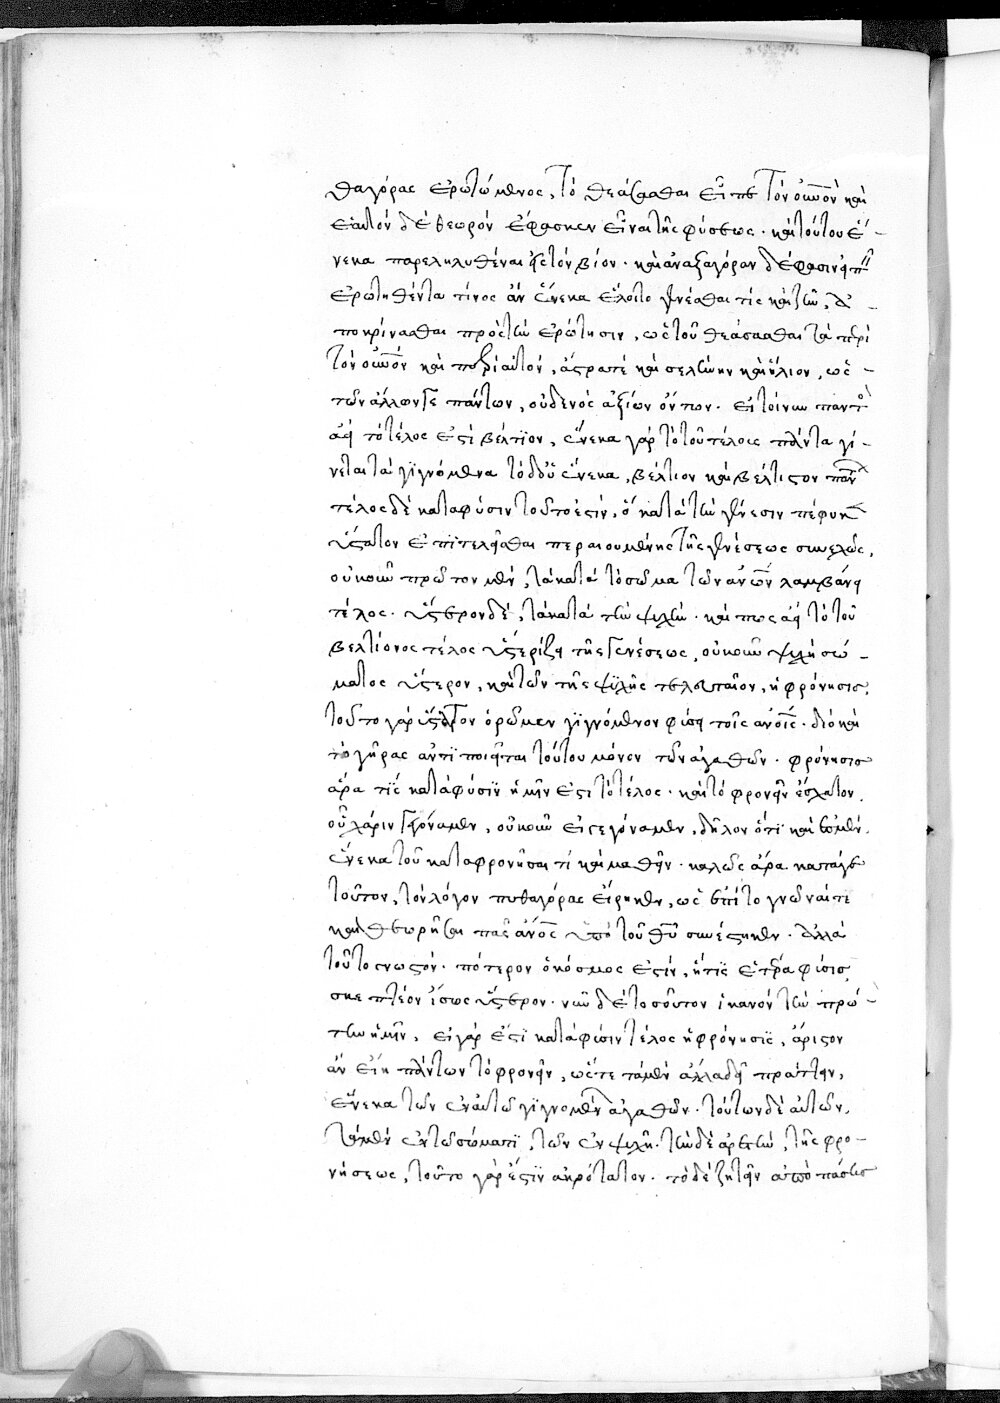 θαγόρας ἐρωτώμενος, τὸ θεάσασθαι εἶπε τὸν οὐνὸν καὶ
ἑαυτὸν δὲ θεωρὸν ἔφασκεν εἶναι τῆς φύσεως· καὶ τούτου ἕ-
νεκα παρεληλυθέναι εἰς τὸν βίον· καὶ ἀναξαγόραν δέ φασιν εἰπεῖν
ἐρωτηθέντα τίνος ἂν ἕνεκα ἕλοιτο γενέσθαι τίς καὶ ζῆν, ἀ-
ποκρίνασθαι πρὸς τὴν ἐρώτησιν, ὡς τοῦ θεάσασθαι τὰ περὶ
τὸν οὐνὸν καὶ περὶ αὐτόν, ἄστρα τε καὶ σελήνην καὶ ἥλιον, ὡς
τῶν ἄλλων γε πάντων, οὐδενὸς ἀξίων ὄντων. εἰ τοίνυν παντὸς
ἀεὶ τὸ τέλος ἐστὶ βέλτιον, ἕνεκα γὰρ τὸ τοῦ τέλους πάντα γί-
νεται τὰ γιγνόμενα τὸ δ' οὗ ἕνεκα, βέλτιον καὶ βέλτιστον πάντων
τέλος δὲ κατα φύσιν τοῦτό ἐστιν, ὃ κατὰ τὴν γένεσιν πέφυκεν
ὕστατον ἐπιτελεῖσθαι περαιουμένης τῆς γενέσεως συνεχῶς,
οὐκοῦν πρῶτον μὲν, τὰ κατὰ τὸ σῶμα τῶν ἀνων λαμβάνει
τέλος· ὕστερον δὲ, τὰ κατὰ τὴν ψυχὴν· καὶ πως ἀεὶ τὸ τοῦ
βελτίονος τέλος ὑστερίζει τῆς γενέσεως, οὐκοῦν ψυχὴ σώ-
ματος ὕστερον, καὶ τῶν τῆς ψυχῆς τελευταῖον, ἡ φρόνησις.
τοῦτο γὰρ ὕστατον ὁρῶμεν γιγνόμενον φύσει τοῖς ἀνοις· διὸ καὶ
τὸ γῆρας ἀντιποιεῖται τούτου μόνον τῶν ἀγαθῶν· φρόνησις
ἄρα τὶς κατὰ φύσιν ἡμῖν ἐστι τὸ τέλος· καὶ τὸ φρονεῖν ἔσχατον
οὗ χάριν γεγόναμεν, οὐκοῦν εἰ γεγόναμεν, δῆλον ὅτι καὶ ἐσμὲν,
ἕνεκα τοῦ καταφρονῆσαι τί καὶ μαθεῖν· καλῶς ἄρα κατάγε
τοῦτον, τὸν λόγον πυθαγόρας εἴρηκεν, ὡς ἐπὶ τὸ γνῶναί τε
καὶ θεωρῆσαι πᾶς ἄνος ὑπὸ τοῦ θυ συνέστηκεν· ἀλλὰ
τοῦτο γνωστόν· πότερον ὁ κόσμος ἐστὶν, ἤ τις ἑτέρα φύσις
σκεπτέον ἴσως ὕστερον· νῦν δὲ τοσοῦτον ἱκανὸν τὴν πρώ-
την ἡμῖν, εἰ γάρ ἐστι κατὰ φύσιν τέλος ἡ φρόνησις, ἄριστον
ἂν εἴη πάντων τὸ φρονεῖν, ὥστε τὰ μὲν ἄλλα δεῖ πράττειν,
ἕνεκα τῶν ἐν αὐτῷ γιγνομένων ἀγαθῶν· τούτων δὲ αὐτῶν,
τὰ μὲν ἐν τῷ σώματι, τῶν ἐν ψυχῇ· τὴν δὲ ἀρετὴν, τῆς φρο-
νήσεως, τοῦτο γὰρ ἐστὶν ἀκρότατον· τὸ δὲ ζητεῖν ἀπὸ πάσης